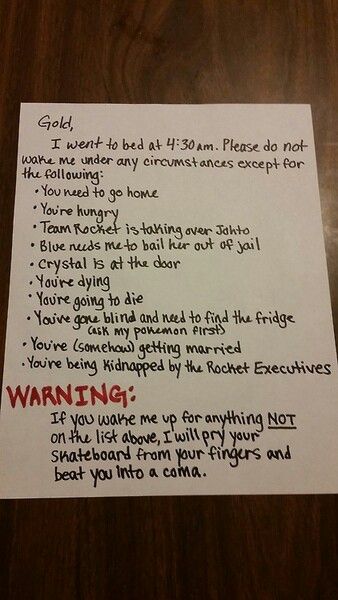 Gold,
I went to bed at 4:30am. Please do not
wake me under any circumstances except for
the following:
• You need to go home
• You're hungry
• Team Rocket is taking over Johto
• Blue needs me to bail her out of jail
• Crystal is at the door
• You're dying
• You're going to die
• You've gone blind and need to find the fridge
(ask my pokemon first)
• You're (somehow) getting married
• You're being kidnapped by the Rocket Executives
WARNING:
If you wake me up for anything NOT
on the list above, I will pry your
skateboard from your fingers and
beat you into a coma.